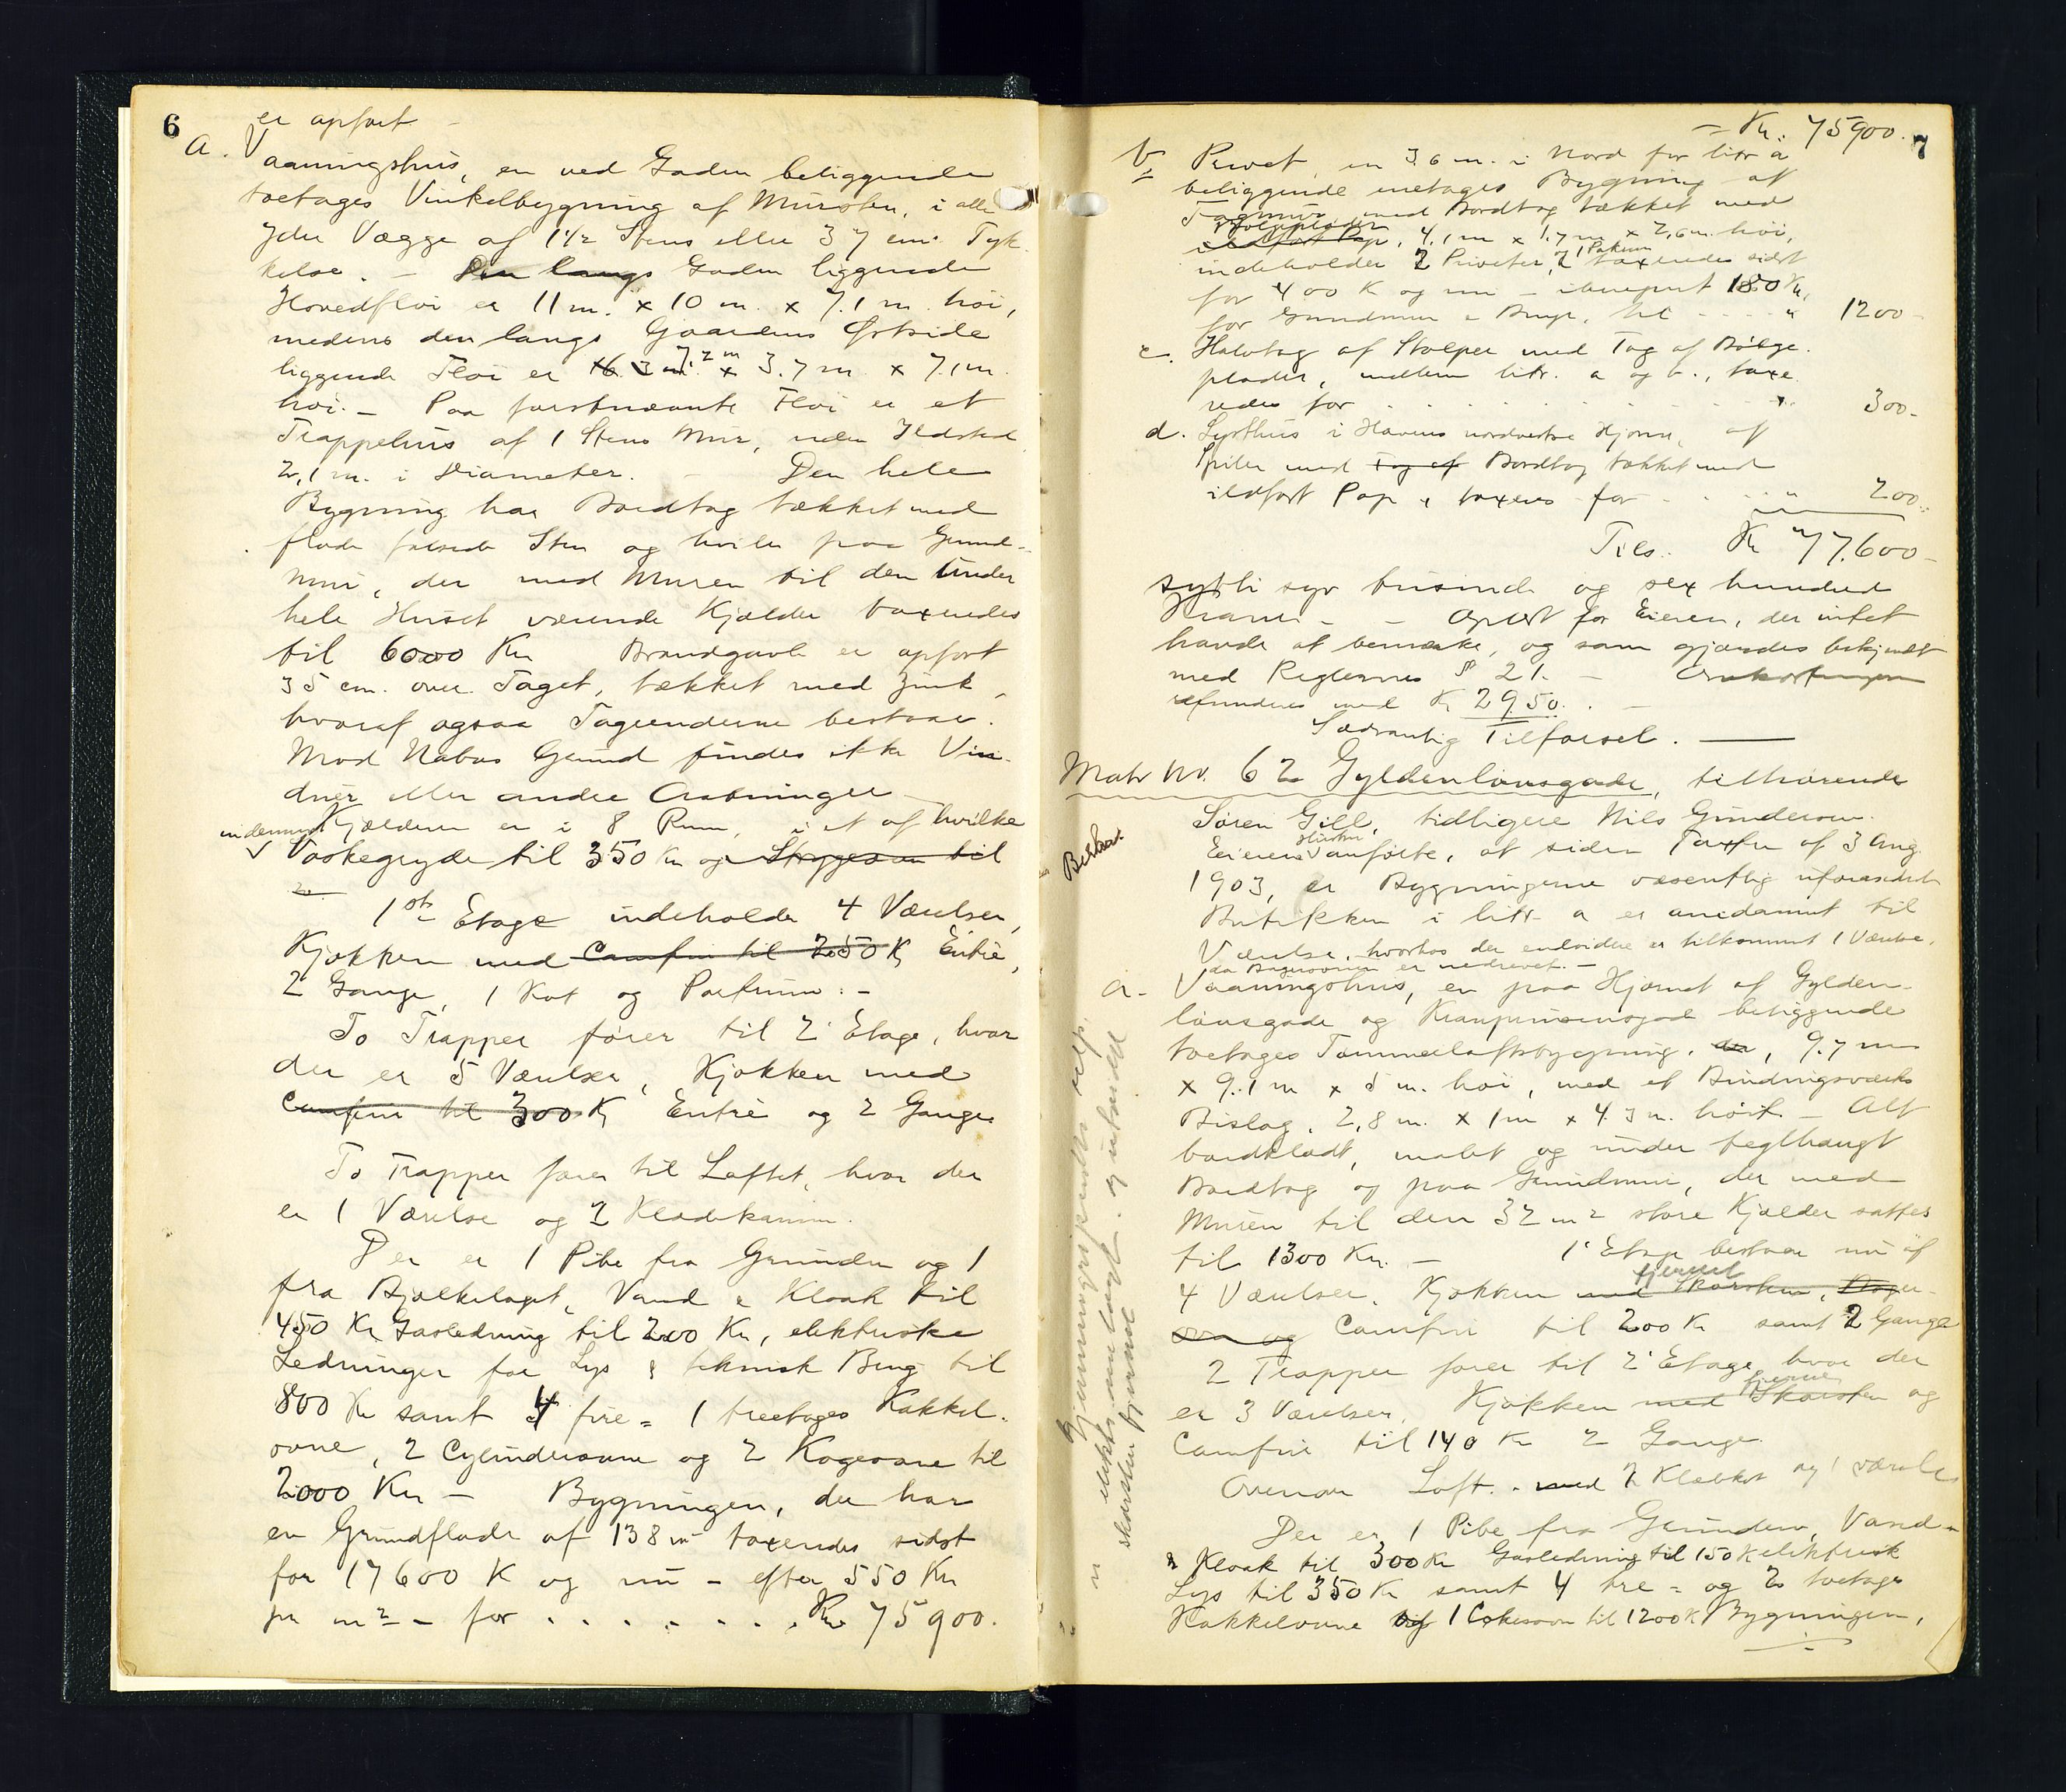 6
er opført –
a. Vaaningshus, en ved Gaden beliggende
toetages Vinkelbygning af Mursten, i alle
ydre Vægge af 1½ Stens eller 37 cm. Tyk-
kelse. – Den langs Gaden liggende
Hovedfløi er 11 m. x 10 m. x 7.1 m. høi,
medens den langs Gaardens Østside
7.2 m
liggende Fløi er 6.3 m. x 3.7 m x 7.1 m.
høi. – Paa førstnævnte Fløi er et
Trappehus af 1 Stens Mur, uden Ildsted
2,1 m. i Diameter. – Den hele
Bygning har Bordtag tækket med
flade falsede Sten og hviler paa Grund-
mur, der med Muren til den under
hele Huset værende Kjælder taxeredes
til 6000 Kr Brandgavle er opført
35 cm. over Taget, tækket med Zink,
hvoraf ogsaa Tagrenderne bestaar.
Mod Nabos Grund findes ikke Vin-
duer eller andre Aabninger –
Kjælderen er i 8 Rum, i et af hvilke
indemuret
Vaskegryde til 350 Kr og Strygeovn til
20
1ste Etage indeholder 4 Værelser,
Kjøkken med Comfur til 250 Kr Entré,
2 Gange, 1 Kot og Portrum. –
To Trapper fører til 2' Etage, hvor
der er 5 Værelser, Kjøkken med
Comfur til 300 Kr Entré og 2 Gange
To Trapper fører til Loftet, hvor der
er 1 Værelse og 2 Klædekamre.
Der er 1 Pibe fra Grunden og 1
fra Bjælkelaget, Vand & Kloak til
450 Kr Gasledning til 200 Kr, elektriske
Ledninger for Lys & teknisk Brug til
800 Kr samt 4 fire = 1 treetages Kakkel-
ovne, 2 Cylinderovne og 2 Kogeovne til
2000 Kr – Bygningen, der har
en Grundflade af 138 m² taxeredes sidst
for 17600 K og nu – efter 550 Kr
pr m² – for . . . . . . . Kr 75 900.
7
– Kr. 75 900.
b Privet, en 3.6 m. i Nord for litr a
beliggende enetages Bygning af
Tagmur, med Bordtag tækket med
Bølgeplader
ildfast Pap, 4,1 m x 1.7 m x 2,6 m. høi,
indeholder 2 Priveter, 1 taxeredes sidst
for 400 K og nu – iberegnet 180 Kr,
for Grundmur & Binge, til . . . . " 1200 –
c. Halvtag af Stolper med Tag af Bølge-
plader, mellem litr. a og b., taxe-
redes for . . . . . . . . . " 300 –
d. Lysthus i Havens nordvestre Hjørne, af
Spiler med Tag af Bordtag tækket med
ildfast Pap, taxeres for . . . . " 200.
Tils. Kr 77.600 –
sytti syv tusinde og sex hundred
Kroner – – Oplæst for Eieren, der intet
havde at bemærke, og som gjordes bekjendt
med Reglernes § 21. – Omkostningerne
refunderes med Kr 29.50. . –
Sædvanlig Tilførsel. –
Matr No. 62 Gyldenløvesgade, tilhørende
Søren Gill, tidligere Nils Gunderson.
Hustru
Eierens anførte, at siden Taxten af 3 Aug
1903, er Bygningerne væsentlig uforandret
Butikken i litr a er omdannet til
Værelse, hvorhos der endvidere er tilkommet 1 Værelse,
da Bagerovnen er nedrevet. –
a. Vaaningshus, en paa Hjørnet af Gylden-
løvesgade og Kronprinsensgade beliggende
toetages Tømmerloftsbygning, 9.7 m
x 9.1 m x 5 m. høi, med et Bindingsværks
Bislag, 2,8 m. x 1 m x 4.3 m. høit. – Alt
bordklædt, malet og under teglhængt
Bordtag og paa Grundmur, der med
Muren til den 32 m² store Kjælder sættes
til 1300 Kr. – 1' Etage bestaar nu af
fjernet
4 Værelser, Kjøkken med Skorsten, Bager-
ovn og Comfur til 200 Kr samt 2 Gange
2 Trapper fører til 2' Etage hvor der
er 3 Værelser, Kjøkken med Skorsten og
Comfur til 140 Kr 2 Gange
Ovenover Loft. med 2 Klædekot og 1 værelse
Der er 1 Pibe fra Grunden, Vand-
& Kloak til 300 Kr Gasledning til 150 K elektrisk
Lys til 350 Kr samt 4 tre = og 2 toetages
Kakkelovne og 1 Cokesovn til 1200 K Bygningen,